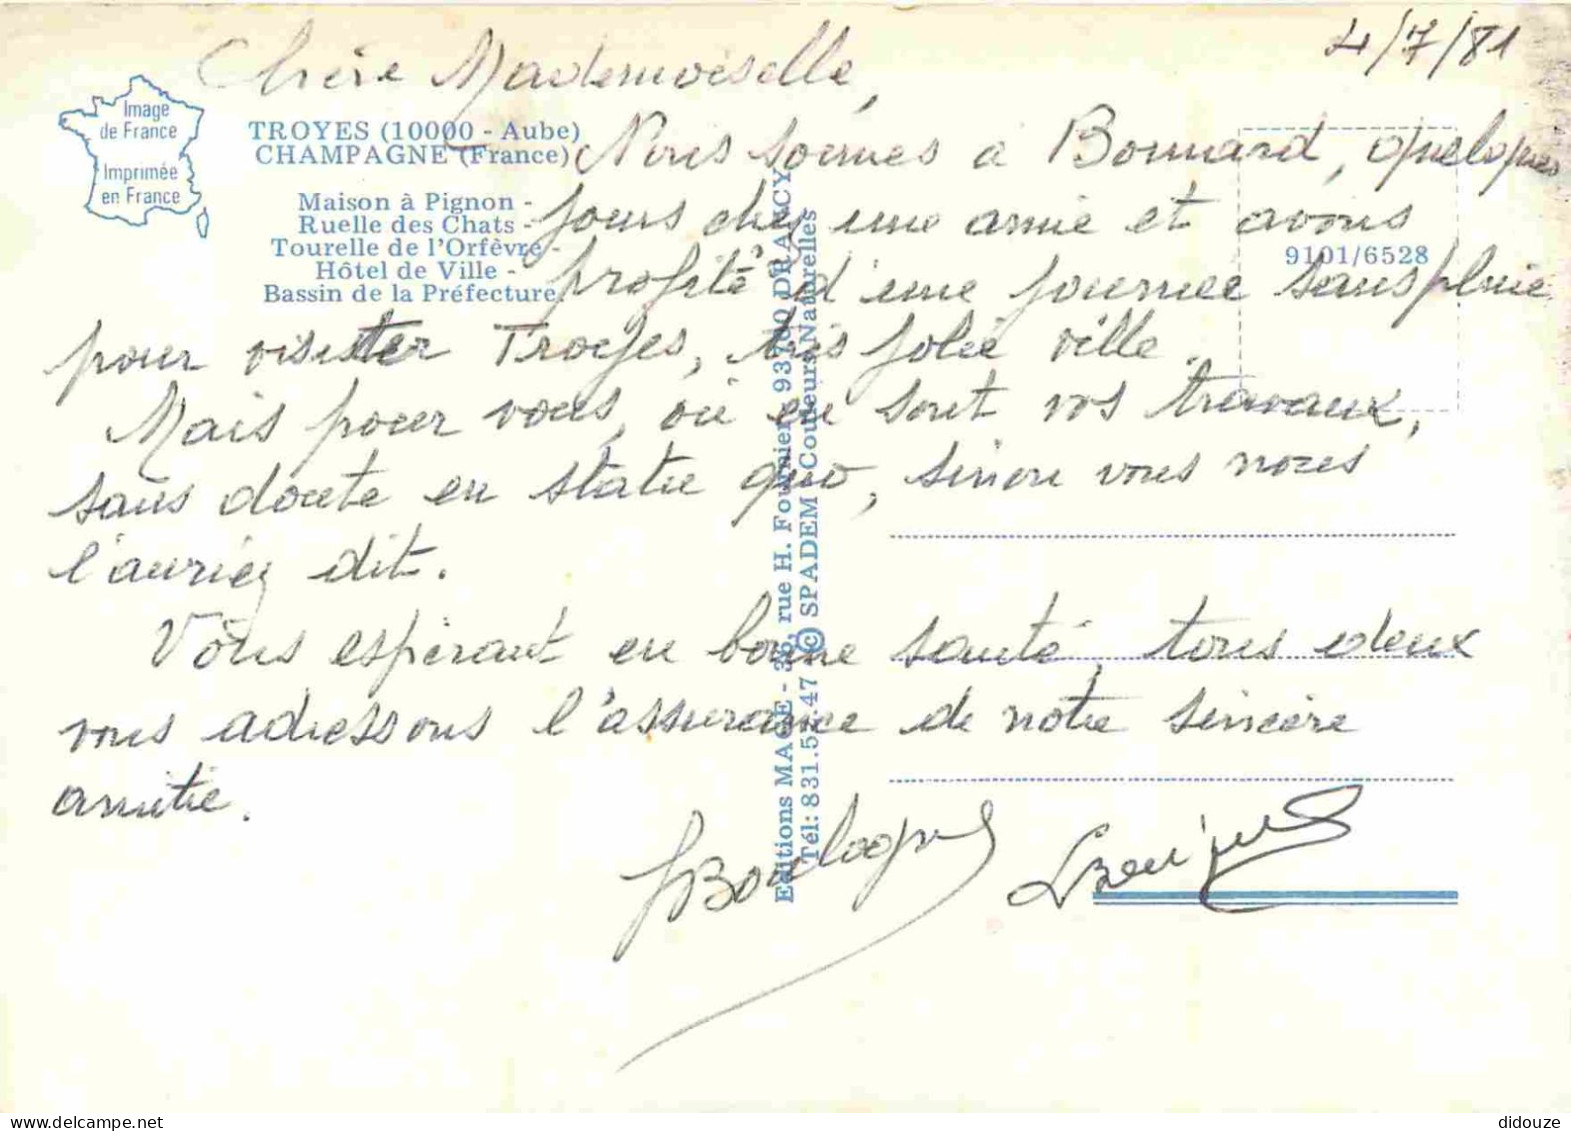 4/7/81
Chère Mademoiselle,
Image
de France
Imprimée
en France
TROYES (10000 - Aube)
CHAMPAGNE (France)
Maison à Pignon -
Ruelle des Chats -
Tourelle de l'Orfèvre -
Hôtel de Ville -
Bassin de la Préfecture.
9101/6528
Nous sommes a Bonnard, quelques
jours chez une amie et avons
profité d'une journée sans pluie
pour visister Troyes, très jolie ville.
Mais pour vous, où en sont vos travaux,
sans doute en statu quo, sinon vous nous
l'auriez dit.
Vous espérant en bonne santé, tous deux
vous adressons l'assurance de notre sincère
amitié.
Boulogne
Editions MAGE - 36, rue H. Fournier, 93700 DRANCY
Tél: 831.57.47 © SPADEM Couleurs Naturelles
didouze